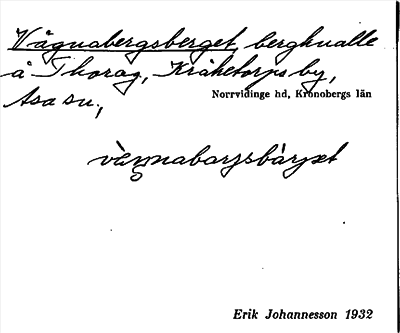 Vågnabergsberget, bergknalle
å Thorag, Kråketorps by,
Asa sn.,
Norrvidinge hd, Kronobergs län
vàŋnabarjsbàrjət
Erik Johannesson 1932